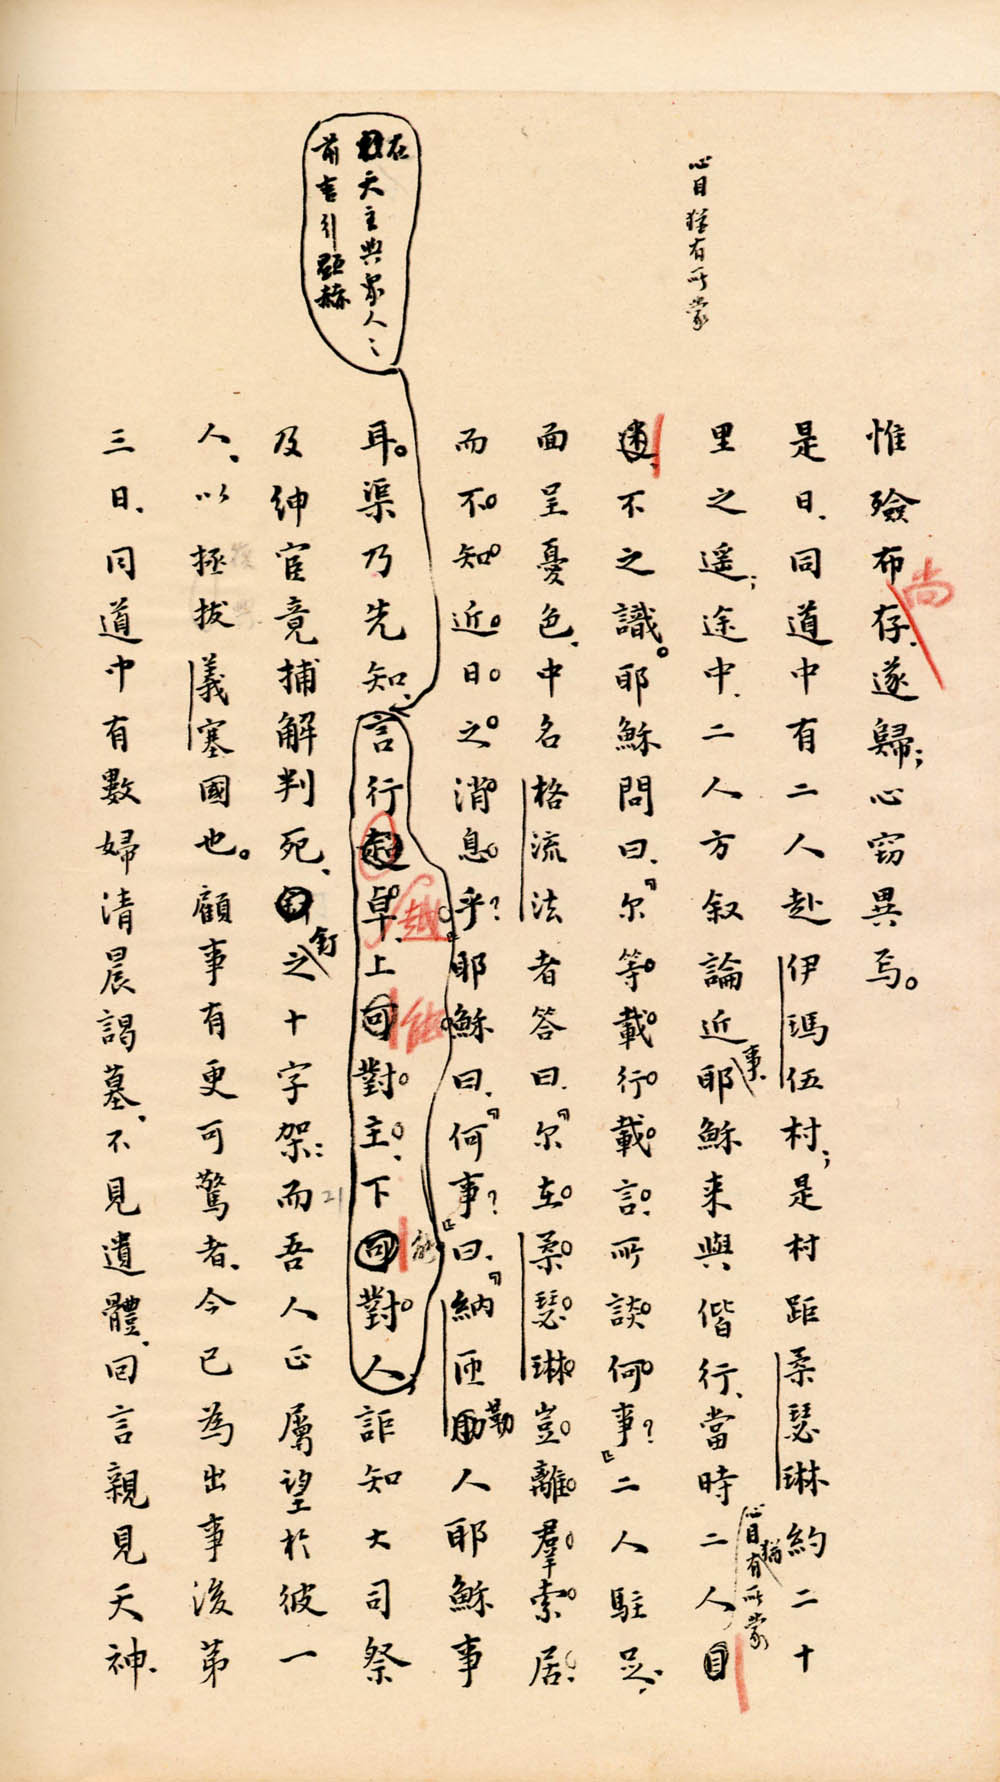 心目猶有所蒙
在天主與眾人之
前言行顯赫
惟殮布存尚遂歸；心窃異焉。
是日、同道中有二人赴伊瑪伍村；是村距柔瑟琳約二十
里之遥；途中、二人方叙論近事耶穌来與偕行、當時二人目
心目猶有所蒙
不之識。耶穌問曰、『尔等載行載言、所談何事？』二人駐足、
面呈憂色、中名格流法者答曰、『尔在柔瑟琳豈離羣索居、
而不知近日之消息乎？』耶穌曰、『何事？』曰、『納匝勒人耶穌事
耳。渠乃先知、言行超卓越、上可能對主、下可能對人、詎知大司祭
及紳宦竟捕解判死、釘之十字架：21而吾人正屬望於彼一
人、以拯拔義塞國也。顧事有更可驚者、今已為出事後第
三日、同道中有數婦清晨謁墓、不見遺體、回言親見天神、